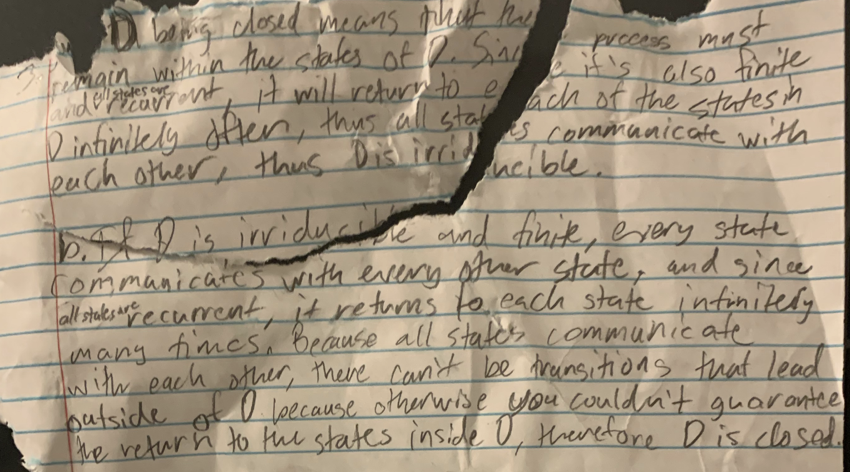 D being closed means that the process must
3. remain within the states of D. Since it's also finite
and all states are recurrent, it will return to each of the states in
D infinitely often, thus all states communicate with
each other, thus D is irriducible.
b. If D is irriducible and finite, every state
communicates with every other state, and since
all states are recurrent, it returns to each state infinitely
many times. Because all states communicate
with each other, there can't be transitions that lead
outside of D because otherwise you couldn't guarantee
the return to the states inside D, therefore D is closed.